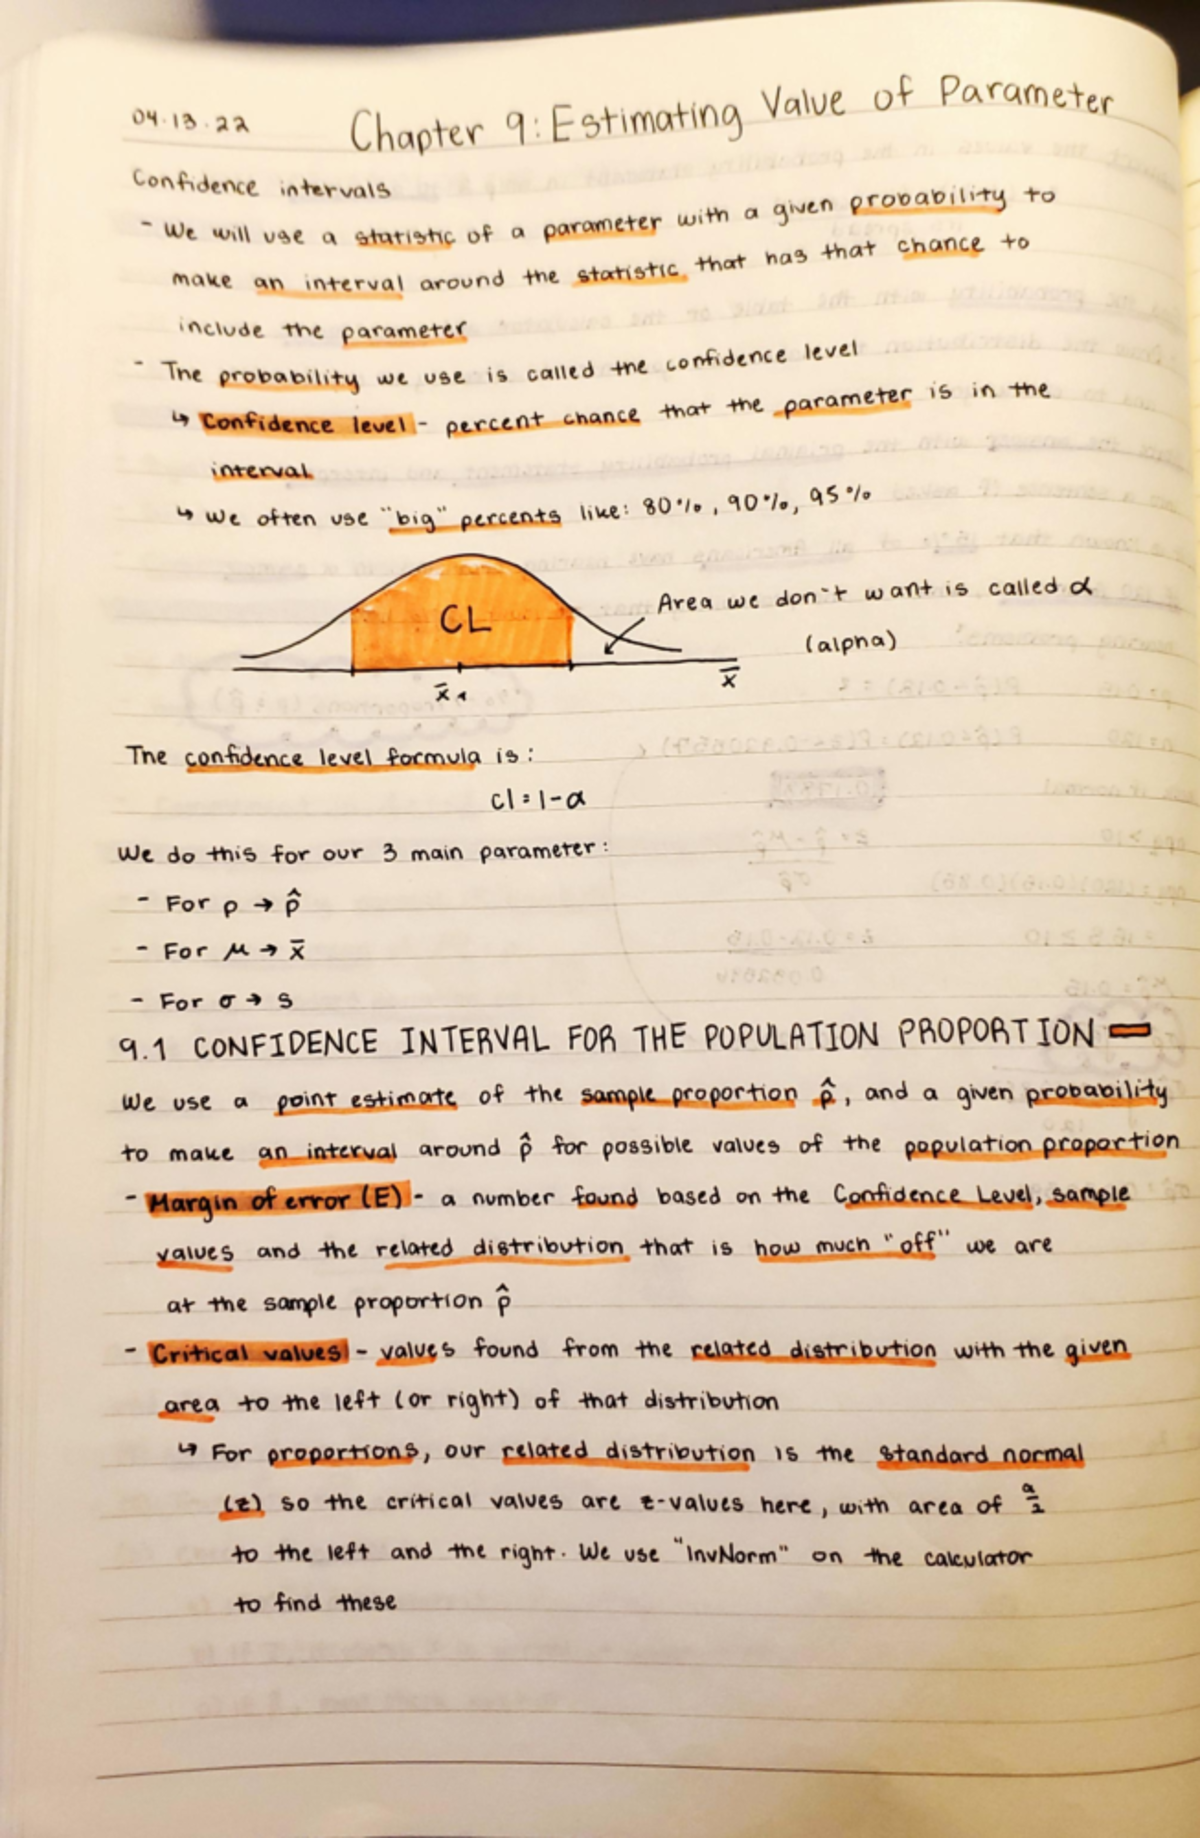 04.13.22
Chapter 9: Estimating Value of Parameter
Confidence intervals
- We will use a statistic of a parameter with a given probability to
make an interval around the statistic that has that chance to
include the parameter
- The probability we use is called the confidence level
↳ Confidence level - percent chance that the parameter is in the
interval
↳ We often use "big" percents like: 80%, 90%, 95%
CL
Area we don't want is called α
(alpha)
x̄
x̄
The confidence level formula is:
cl = 1-α
We do this for our 3 main parameter:
- For p → p̂
- For μ → x̄
- For σ → s
9.1 CONFIDENCE INTERVAL FOR THE POPULATION PROPORTION
We use a point estimate of the sample proportion p̂, and a given probability
to make an interval around p̂ for possible values of the population proportion
- Margin of error (E) - a number found based on the Confidence Level, sample
values and the related distribution that is how much "off" we are
at the sample proportion p̂
- Critical values - values found from the related distribution with the given
area to the left (or right) of that distribution
↳ For proportions, our related distribution is the standard normal
(z) so the critical values are z-values here, with area of α/2
to the left and the right. We use "InvNorm" on the calculator
to find these